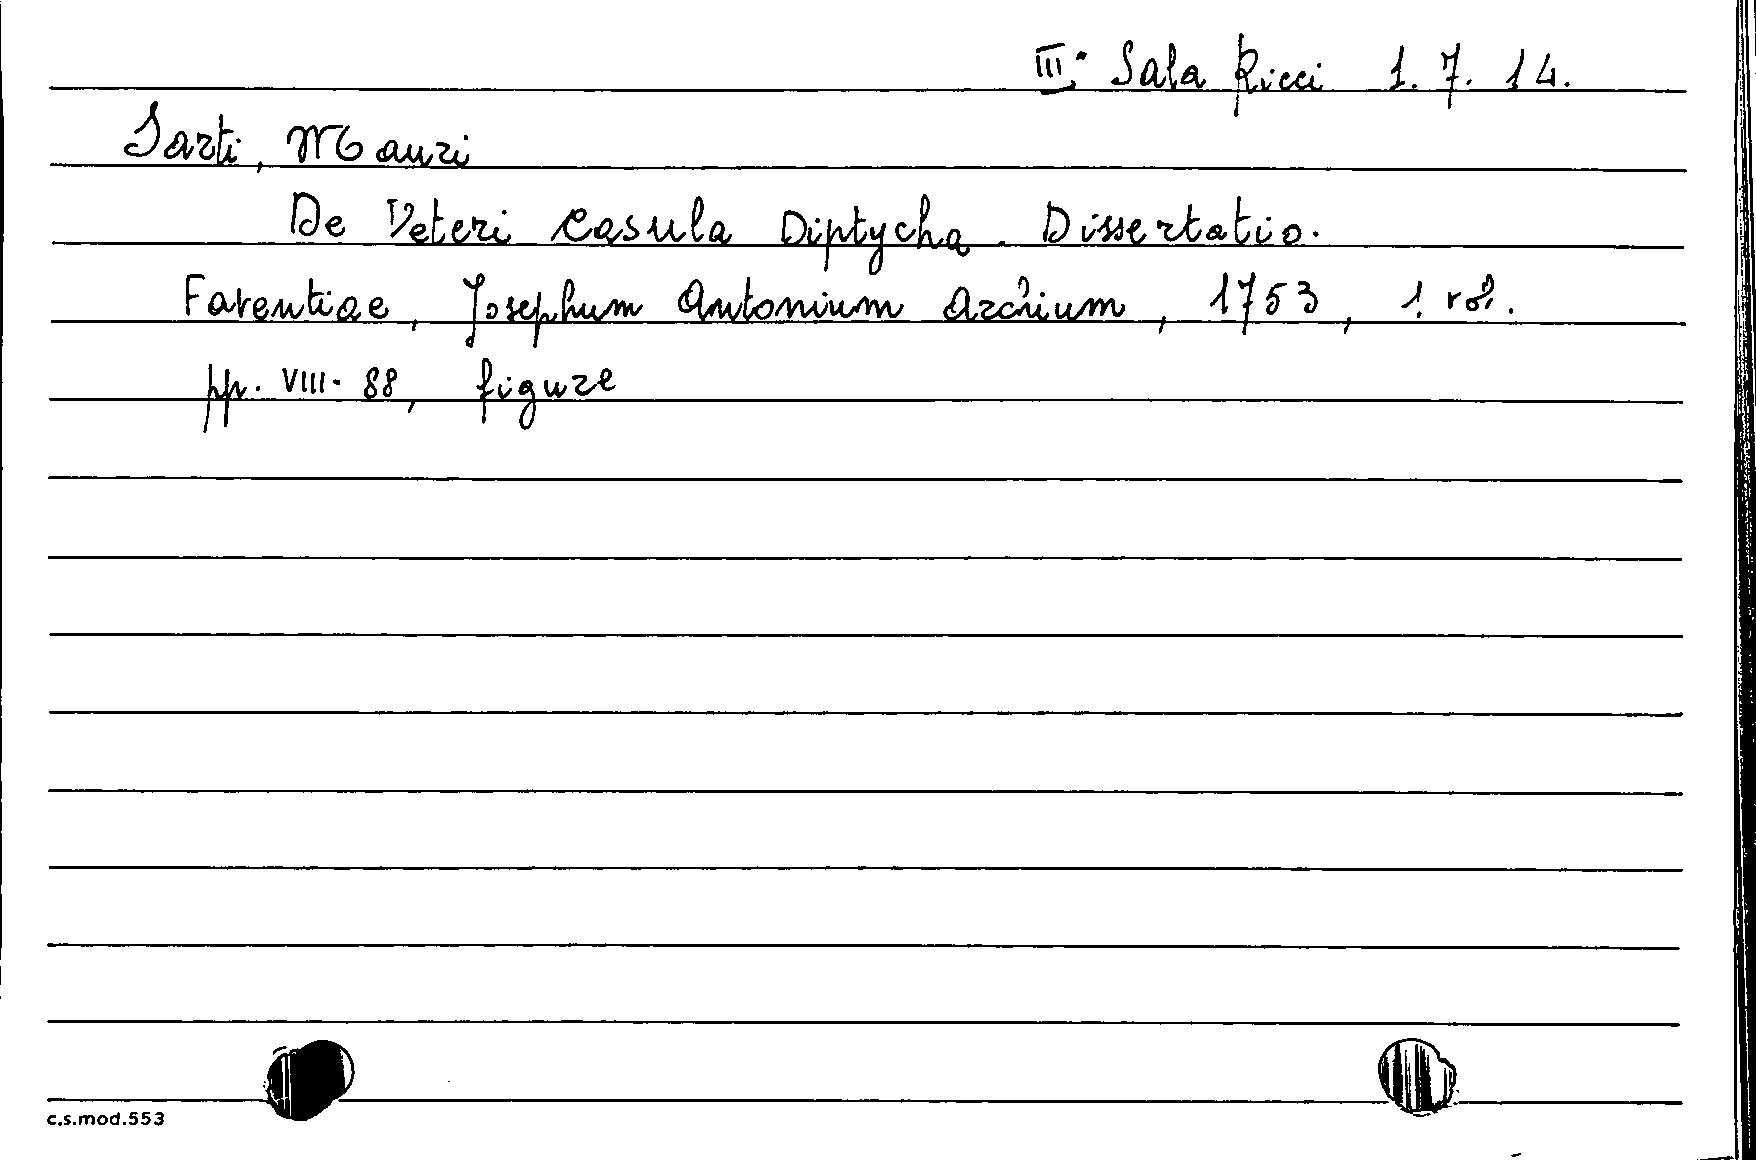 III. Sala Ricci 1. 7. 14.
Sarti, Mauri
De Veteri Casula Diptycha. Dissertatio.
Faventiae, Josephum Antonium Archium, 1753, 1. vol.
pp. VIII. 88, figure
c.s.mod.553